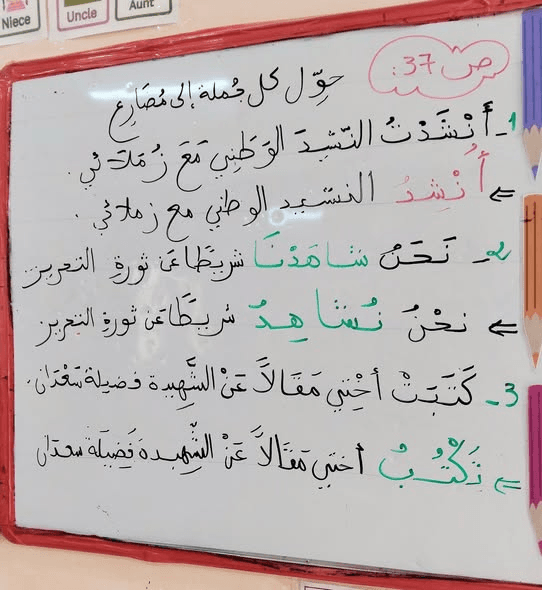 Niece
Uncle
Aunt
ص 37:
حوِّل كل جُملة إلى مُضَارِع
1- أَنْشَدْتُ النَّشِيدَ الوَطَنِي مَعَ زُمَلَائِي.
⇐ أُنْشِدُ النشيد الوطني مع زملائي.
2- نَحْنُ شَاهَدْنَا شَرِيطًا عَنْ ثورةِ التحرير
⇐ نحْنُ نُشَاهِدُ شَرِيطًا عَنْ ثورةِ التحرير
3- كَتَبَتْ أُخْتِي مَقَالاً عَنْ الشَّهِيدة فضيلة سَعْدَان.
⇐ تَكْتُبُ أختي مَقَالاً عَنْ الشَّهيدة فَضِيلَة سعدان